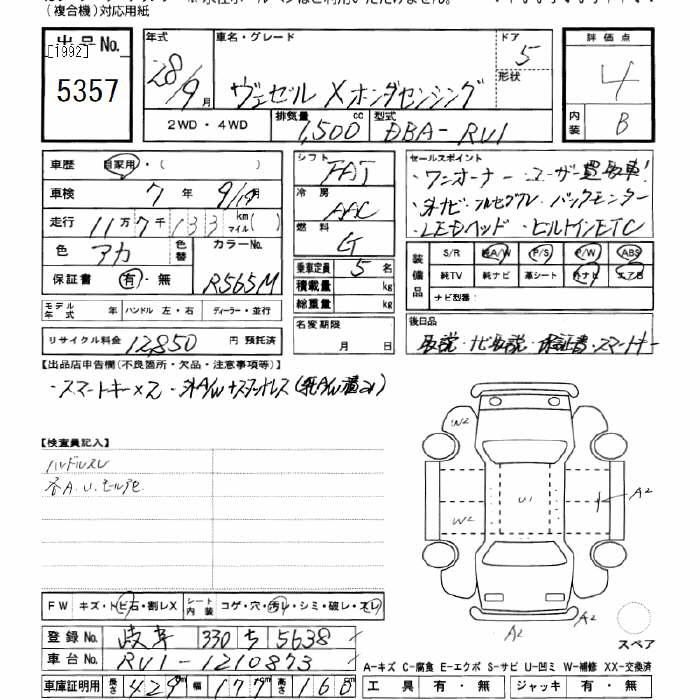 (複合機)対応用紙
出品No.
[1992]
5357
年式
28/9月
車名・グレード
ヴェゼル X ホンダセンシング
ドア
5
形状
評価点
4
内装
B
2WD・4WD
排気量
1,500cc
型式
DBA-RU1
車歴
自家用・( )
車検
7年 9/
走行
11万7千133 km マイル( )
色
アカ
色替
カラーNo.
R565M
保証書
有・無
モデル年式 年
ハンドル 左・右
ディーラー・並行
リサイクル料金 12,850 円 預託済
シフト
FAT
冷房
AAC
燃料
G
乗車定員 5 名
積載量 kg
総重量 kg
名変期限
月 日
セールスポイント
・ワンオーナー・ユーザー買取車!
・外ナビ・フルセグTV・バックモニター
・LEDヘッド・ビルトインETC
装備品
S/R 純A/W P/S P/W ABS
純TV 純ナビ 革シート 外ナビ エアB
ナビ型番:
後日品
取説・ナビ取説・保証書・スマートキー
【出品店申告欄(不良箇所・欠品・注意事項等)】
・スマートキー×2・外A/W+スタッドレス(純A/W積み)
【検査員記入】
ハンドルスレ
各A.U.
W2
W2
U1
A2
A2
A2
A2
スペア
FW キズ・トビ石・割レX
シート内装 コゲ・穴・汚レ・シミ・破レ・スレ
登録No. 岐阜 330 ち 5638
車台No. RU1-1210873
車庫証明用 長さ 429 幅 177 高さ 160
A-キズ C-腐食 E-エクボ S-サビ U-凹ミ W-補修 XX-交換済
工具 有・無 ジャッキ 有・無